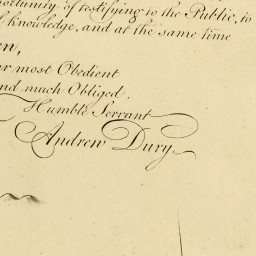 portunity of testifying to the Public, to
knowledge, and at the same time
most Obedient
and much Obliged.
Humble Servant
Andrew Dury